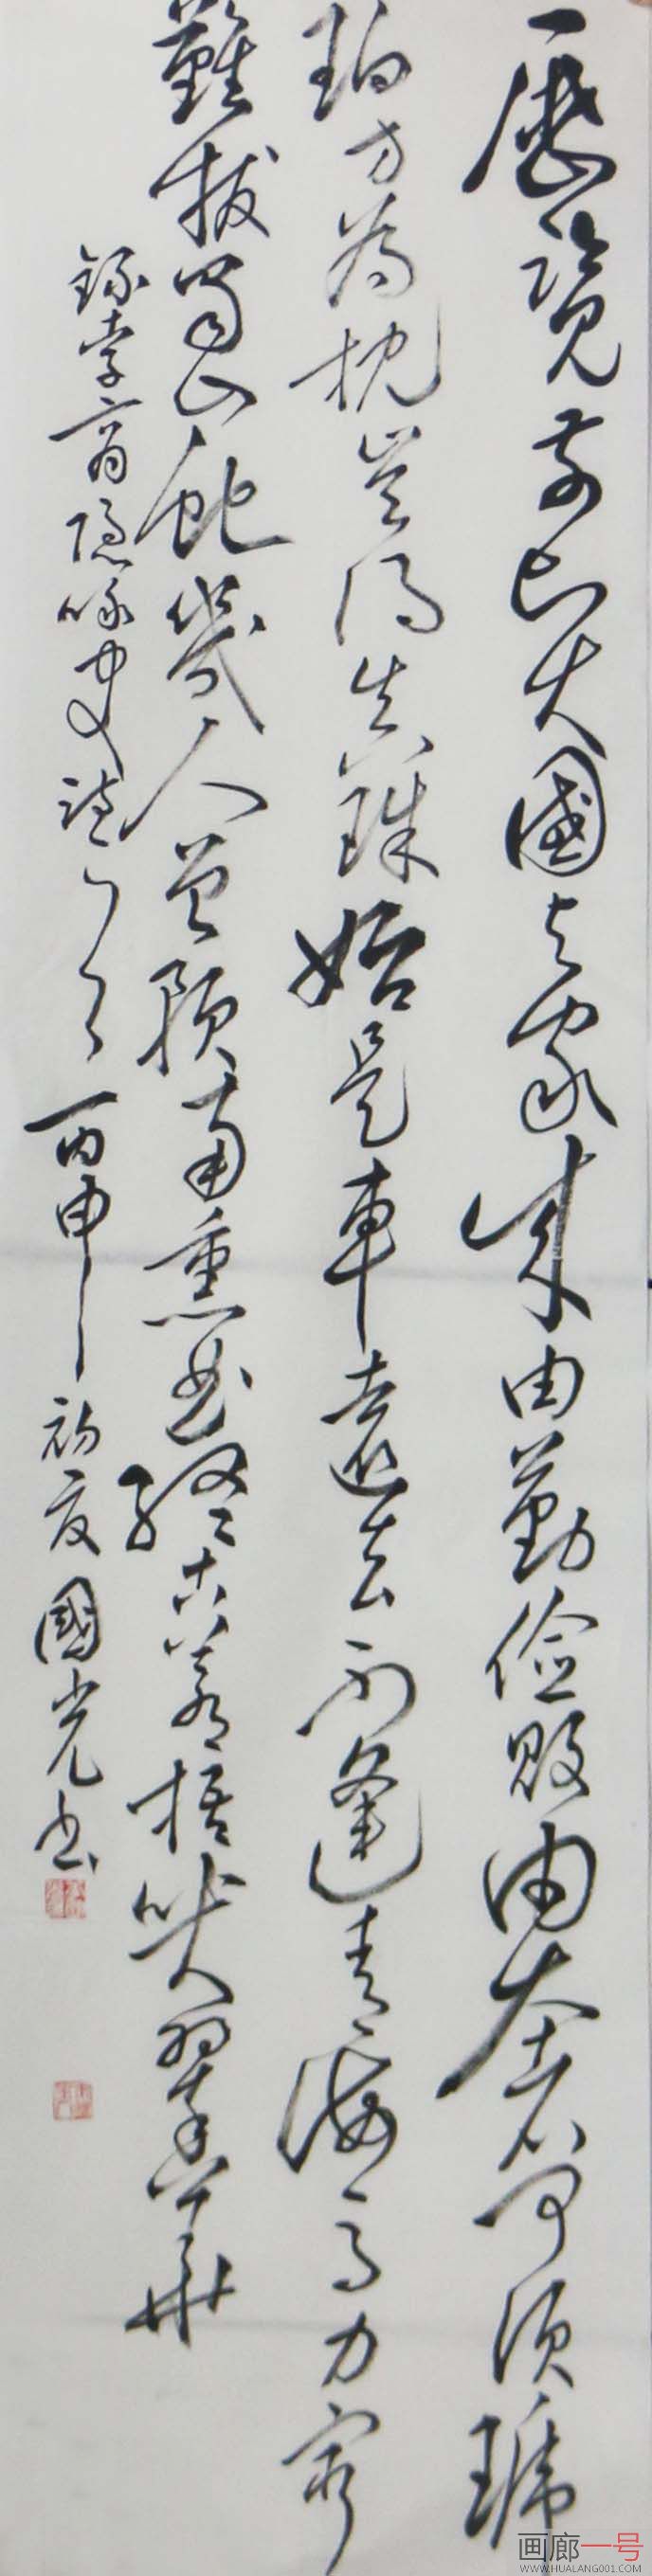 歷覽前賢國与家成由勤儉敗由奢何須琥
珀方為枕豈得真珠始是車遠去不逢青海馬力窮
難拔蜀山蛇幾人曾預南熏曲終古蒼梧哭翠華
錄李商隱咏史詩一首丙申初夏國光书
画廊一号
WWW.HUALANG001.COM